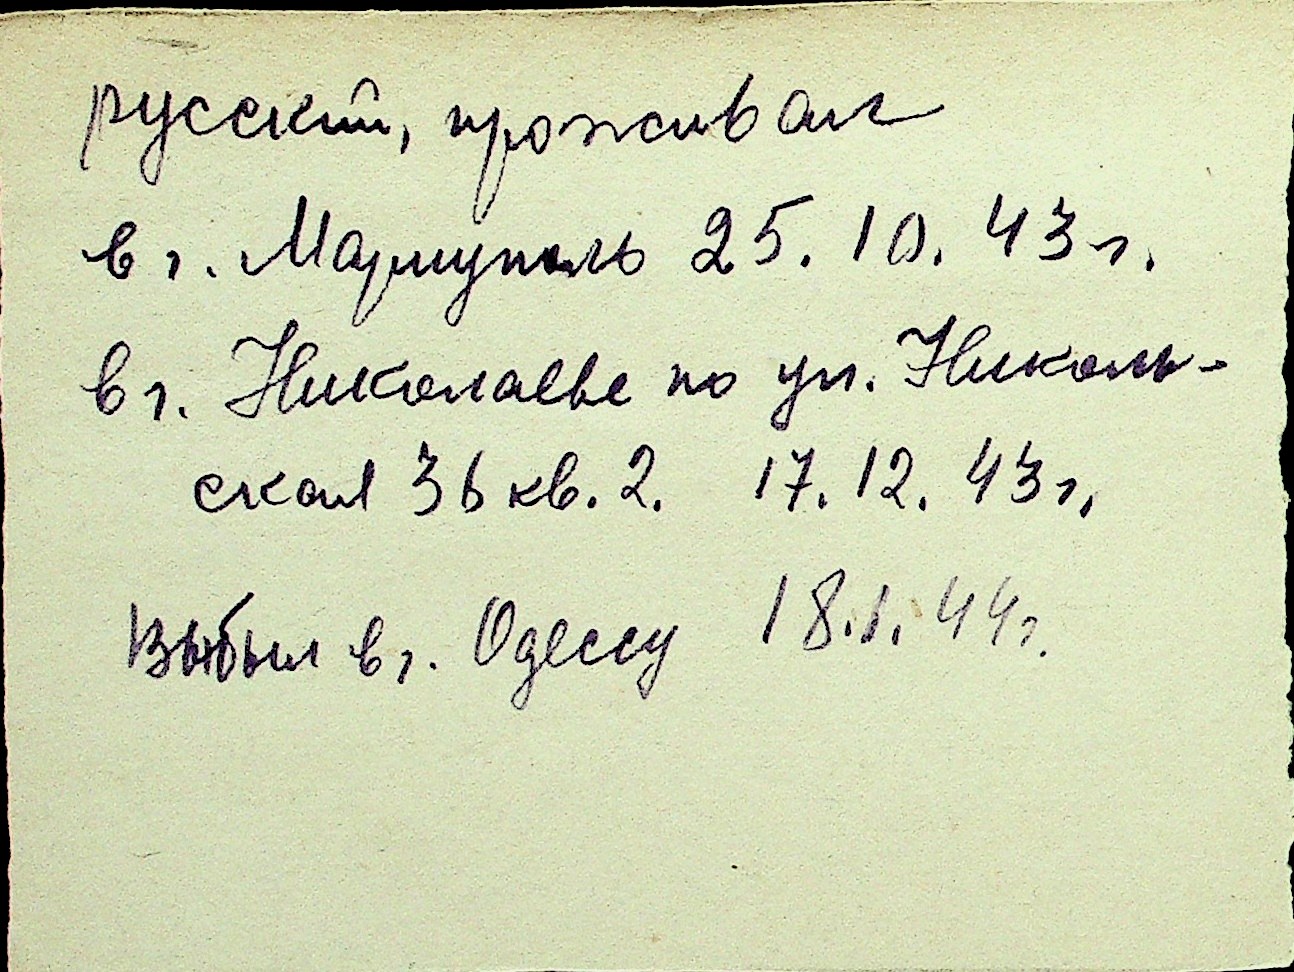 русский, проживал
в г. Мариуполь 25.10.43 г.
в г. Николаеве по ул. Николь-
ская 36 кв. 2. 17.12.43 г.
Выбыл в г. Одессу 18.1.44 г.